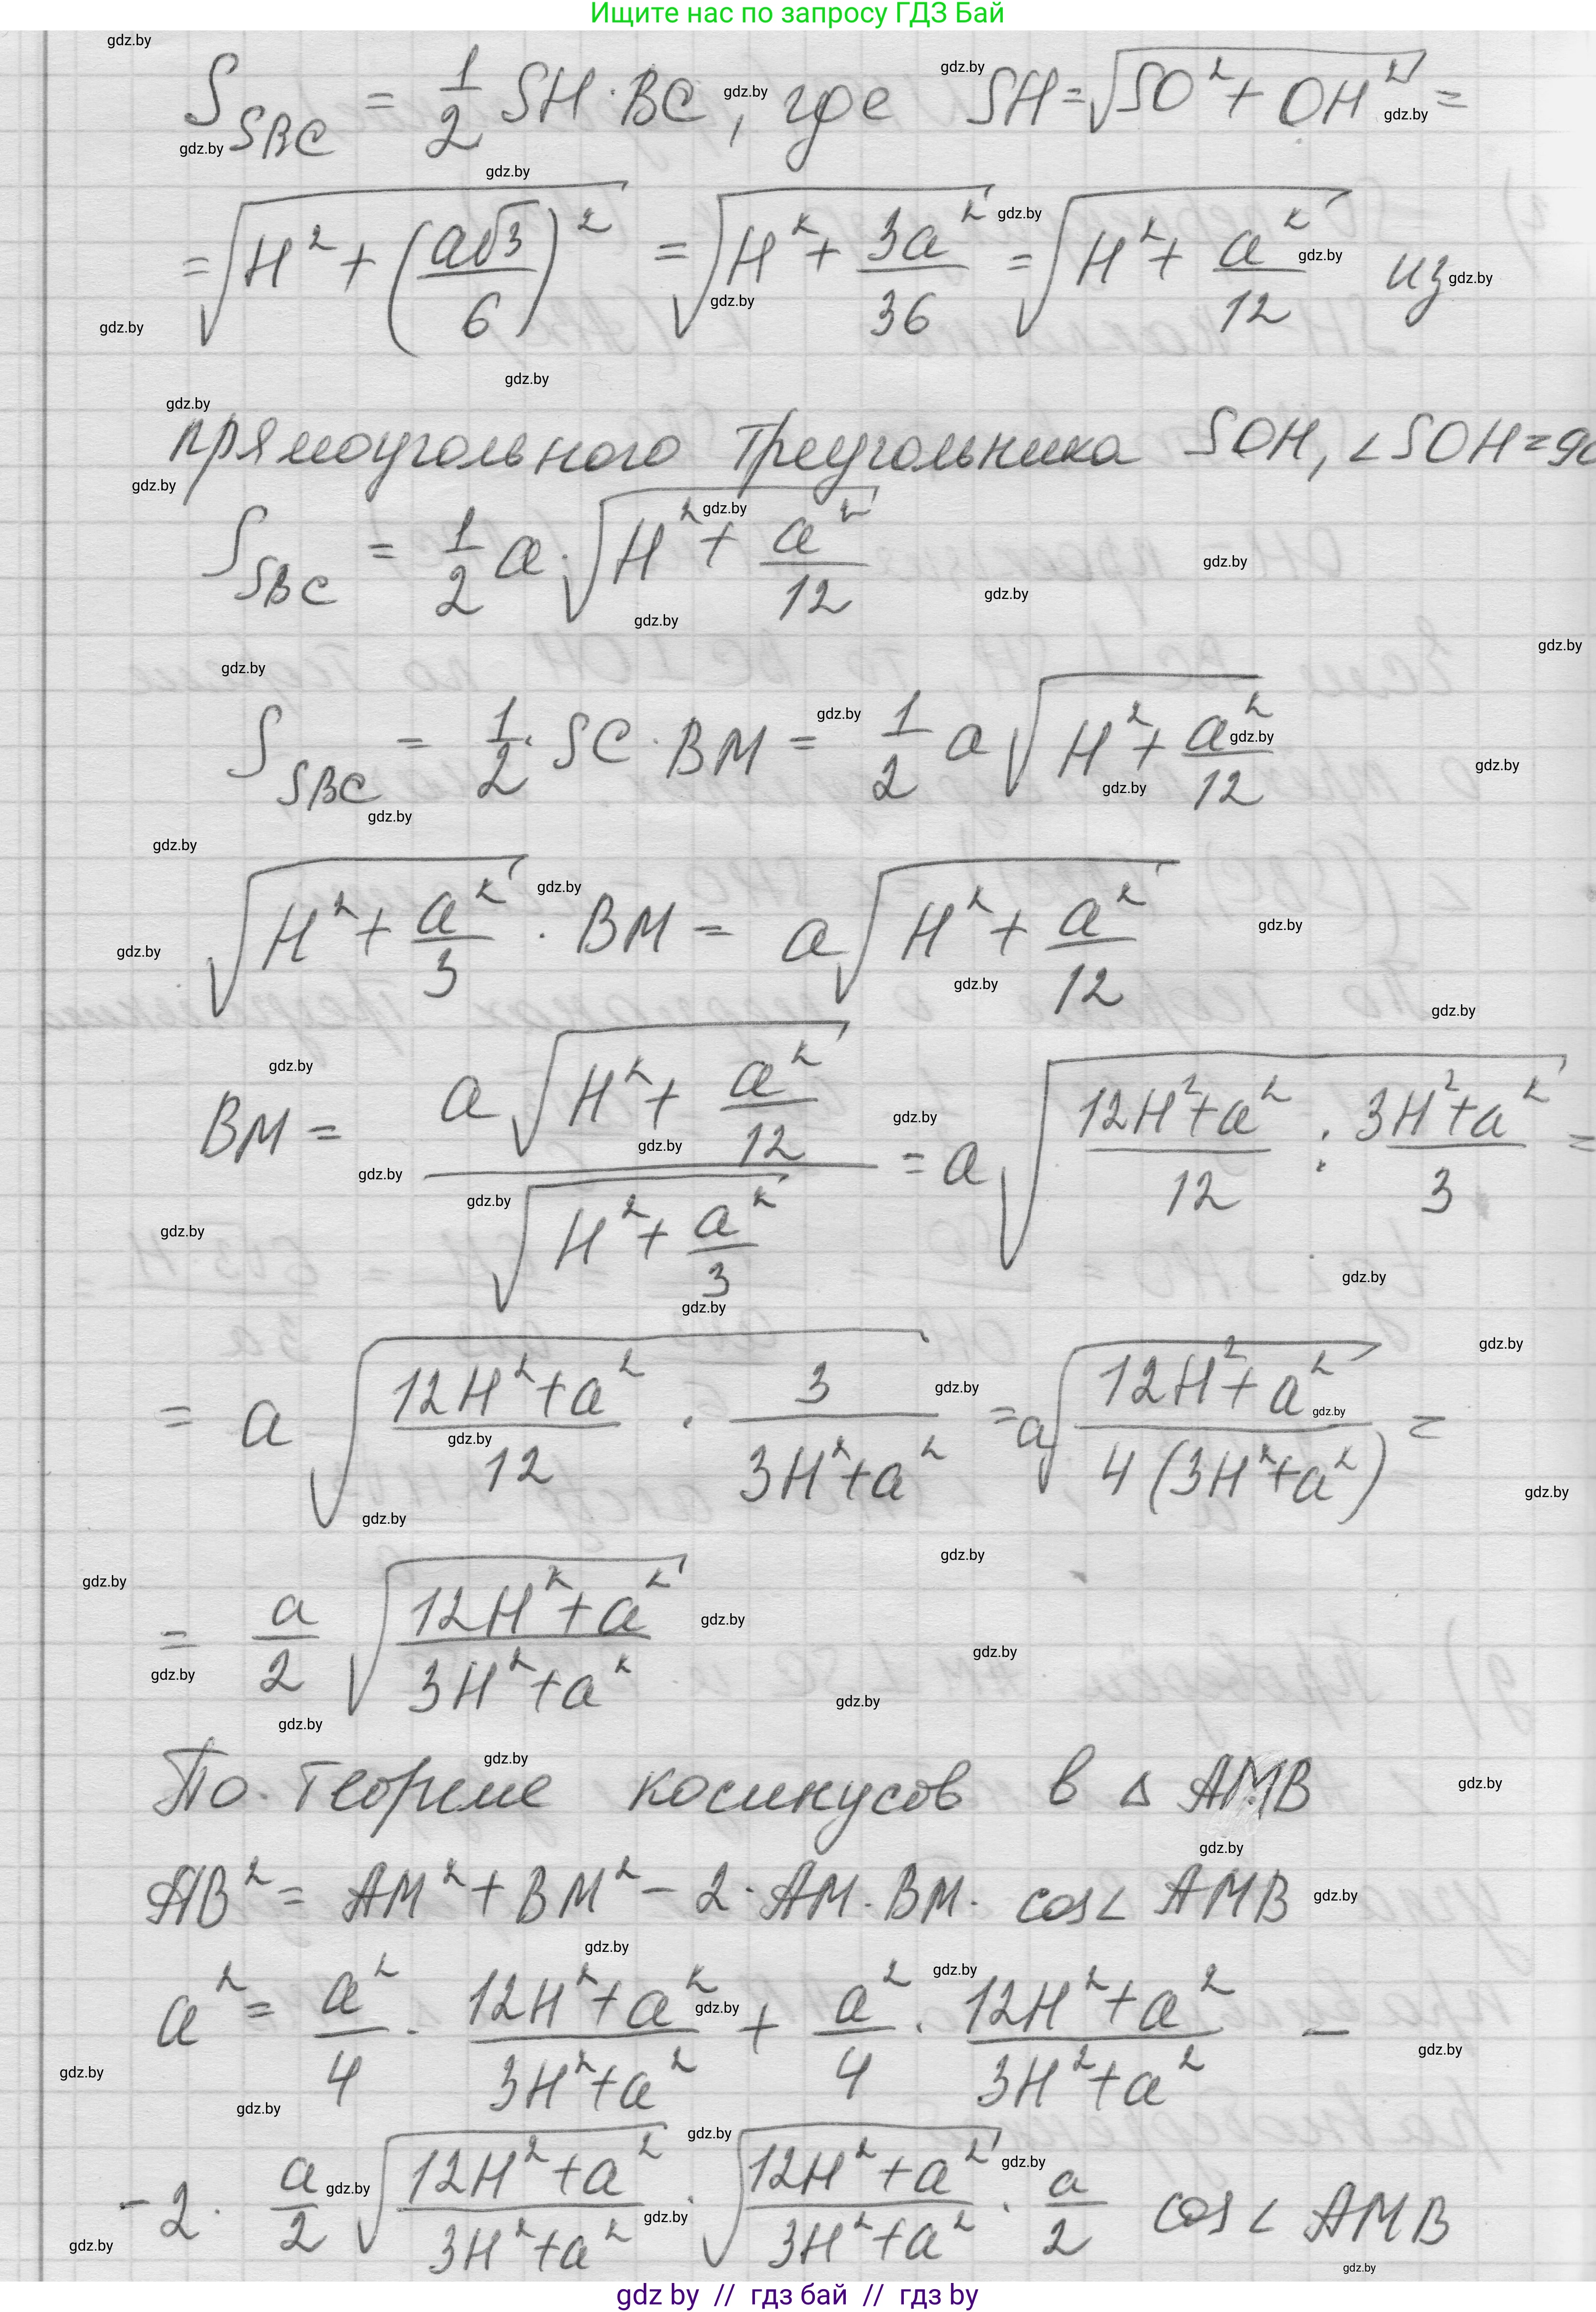 Ищите нас по запросу ГДЗ Бай
S_{SBC} = \frac{1}{2} SH · BC, где SH = \sqrt{SO^2 + OH^2} =
= \sqrt{H^2 + (\frac{a\sqrt{3}}{6})^2} = \sqrt{H^2 + \frac{3a^2}{36}} = \sqrt{H^2 + \frac{a^2}{12}} из
прямоугольного треугольника SOH, ∠SOH = 90
S_{SBC} = \frac{1}{2} a · \sqrt{H^2 + \frac{a^2}{12}}
S_{SBC} = \frac{1}{2} · SC · BM = \frac{1}{2} a \sqrt{H^2 + \frac{a^2}{12}}
\sqrt{H^2 + \frac{a^2}{3}} · BM = a \sqrt{H^2 + \frac{a^2}{12}}
BM = \frac{a \sqrt{H^2 + \frac{a^2}{12}}}{\sqrt{H^2 + \frac{a^2}{3}}} = a \sqrt{\frac{12H^2 + a^2}{12} : \frac{3H^2 + a^2}{3}} =
= a \sqrt{\frac{12H^2 + a^2}{12} · \frac{3}{3H^2 + a^2}} = a \sqrt{\frac{12H^2 + a^2}{4(3H^2 + a^2)}} =
= \frac{a}{2} \sqrt{\frac{12H^2 + a^2}{3H^2 + a^2}}
По теореме косинусов в △ AMB
AB^2 = AM^2 + BM^2 - 2 · AM · BM · cos∠ AMB
a^2 = \frac{a^2}{4} · \frac{12H^2 + a^2}{3H^2 + a^2} + \frac{a^2}{4} · \frac{12H^2 + a^2}{3H^2 + a^2} -
- 2 · \frac{a}{2} \sqrt{\frac{12H^2 + a^2}{3H^2 + a^2}} · \sqrt{\frac{12H^2 + a^2}{3H^2 + a^2}} · \frac{a}{2} cos∠ AMB
gdz by // гдз бай // gdz by